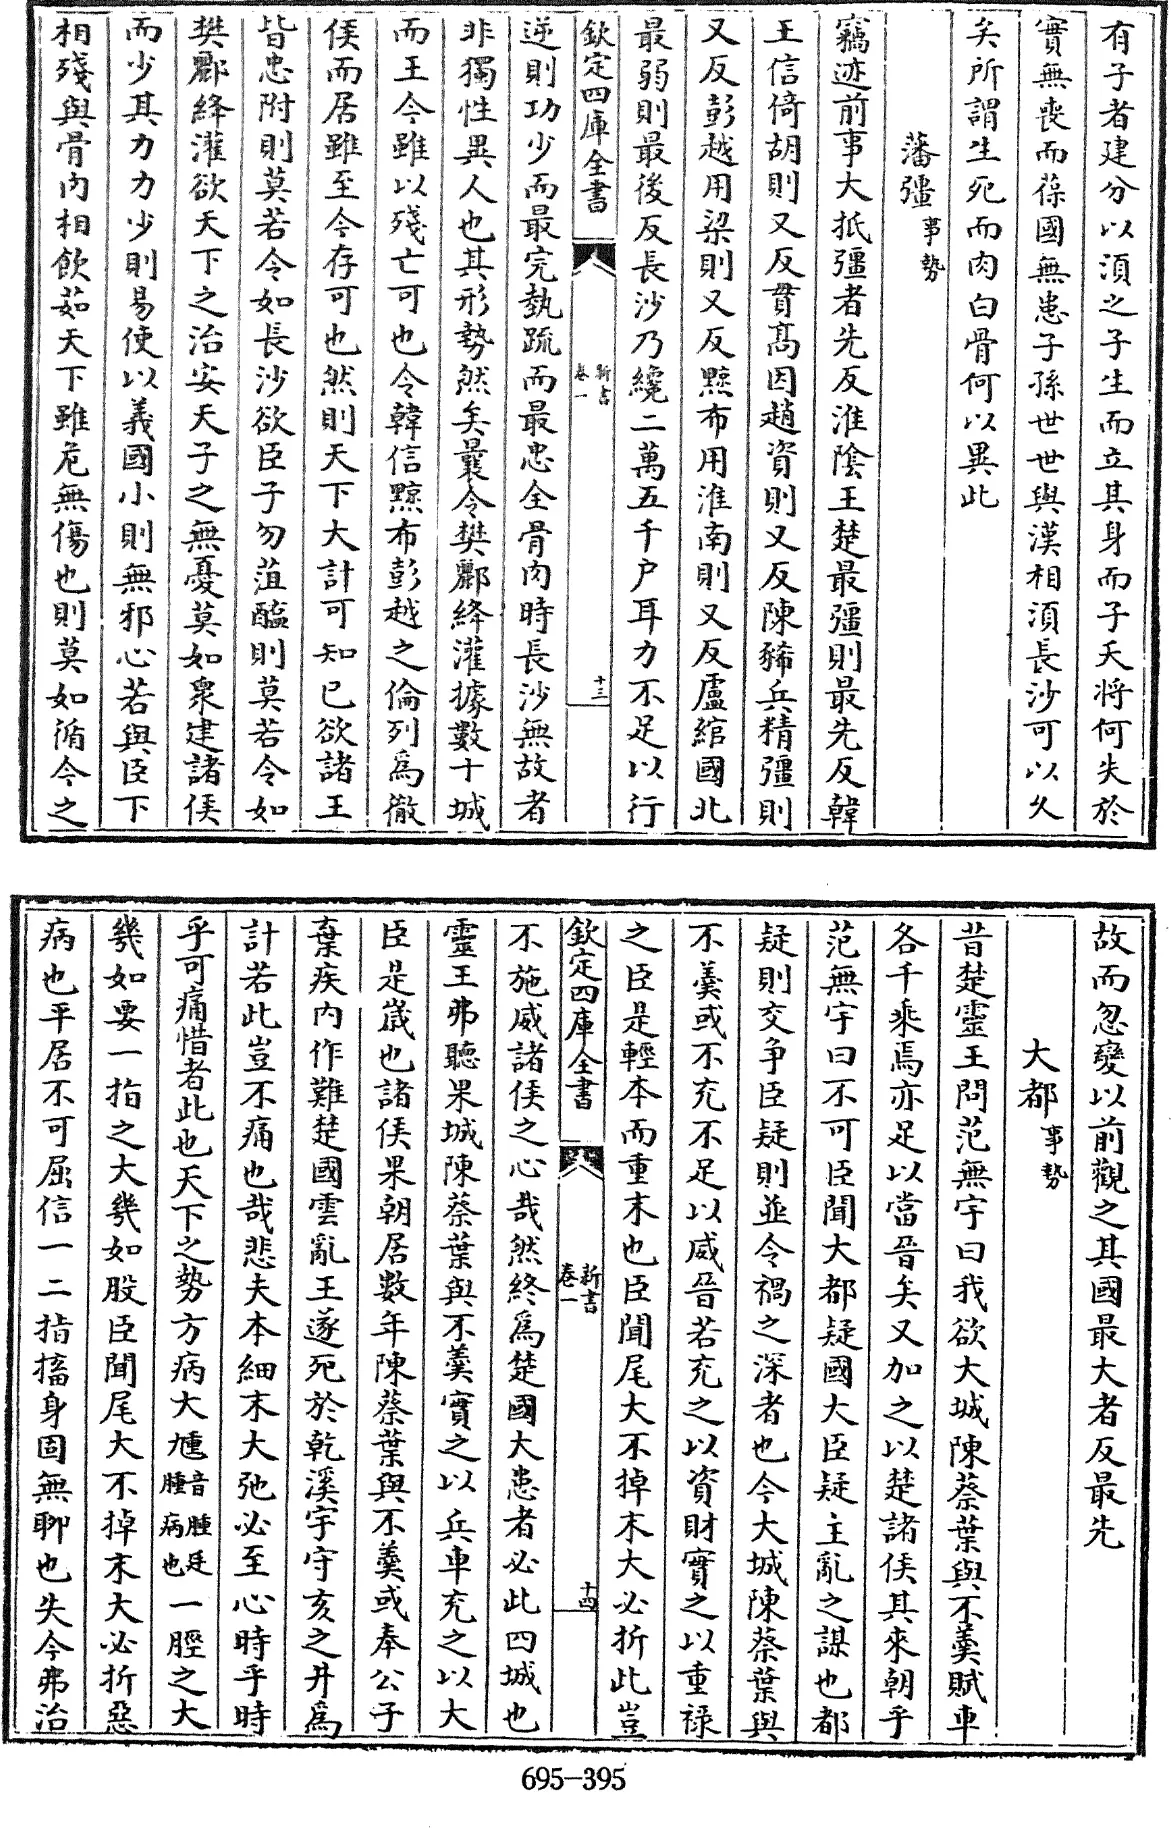 有子者建分以須之子生而立其身而子夭將何失於
實無喪而葆國無患子孫世世與漢相須長沙可以久
矣所謂生死而肉白骨何以異此
藩彊事勢
竊迹前事大抵彊者先反淮陰王楚最彊則最先反韓
王信倚胡則又反貫髙因趙資則又反陳豨兵精彊則
又反彭越用梁則又反黥布用淮南則又反盧綰國北
最弱則最後反長沙乃纔二萬五千户耳力不足以行
欽定四庫全書
新書
卷一
十三
逆則功少而最完執疏而最忠全骨肉時長沙無故者
非獨性異人也其形勢然矣曩令樊酈絳灌據數十城
而王今雖以殘亡可也令韓信黥布彭越之倫列為徹
侯而居雖至今存可也然則天下大計可知已欲諸王
皆忠附則莫若令如長沙欲臣子勿菹醢則莫若令如
樊酈絳灌欲天下之治安天子之無憂莫如衆建諸侯
而少其力力少則易使以義國小則無邪心若與臣下
相殘與骨肉相飲茹天下雖危無傷也則莫如循今之
故而忽變以前觀之其國最大者反最先
大都事勢
昔楚靈王問范無宇曰我欲大城陳蔡葉與不羮賦車
各千乘焉亦足以當晉矣又加之以楚諸侯其來朝乎
范無宇曰不可臣聞大都疑國大臣疑主亂之謀也都
疑則交争臣疑則並令禍之深者也今大城陳蔡葉與
不羮或不充不足以威晉若充之以資財實之以重禄
之臣是輕本而重末也臣聞尾大不掉末大必折此豈
欽定四庫全書
新書
卷一
十四
不施威諸侯之心哉然終為楚國大患者必此四城也
靈王弗聽果城陳蔡葉與不羮實之以兵車充之以大
臣是嵗也諸侯果朝居數年陳蔡葉與不羮或奉公子
棄疾内作難楚國雲亂王遂死於乾溪宇守亥之井為
計若此豈不痛也哉悲夫本細末大弛必至心時乎時
乎可痛惜者此也天下之勢方病大尰音腫足腫病也一脛之大
幾如要一指之大幾如股臣聞尾大不掉末大必折惡
病也平居不可屈信一二指搐身固無聊也失今弗治
695-395